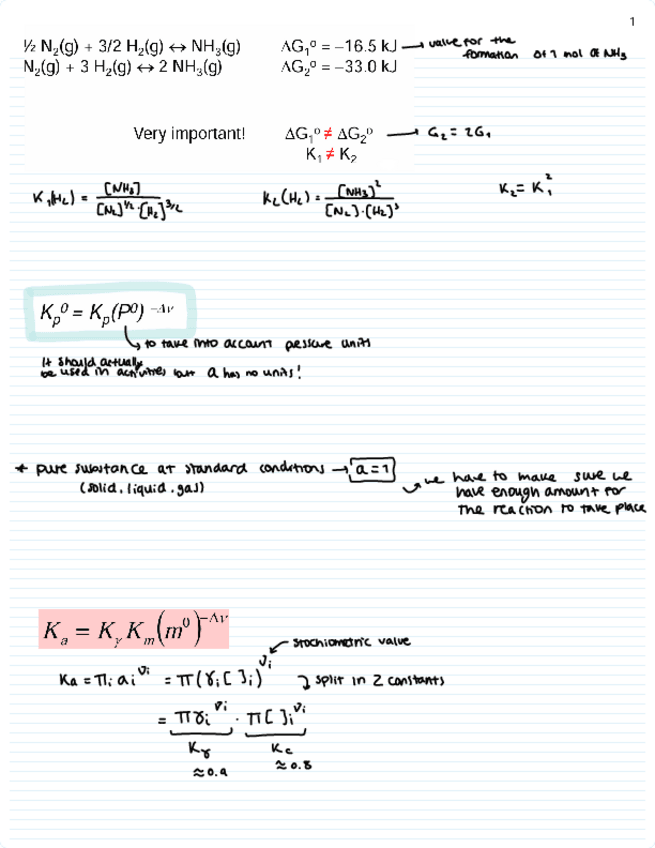 1
½ N₂(g) + 3/2 H₂(g) ↔ NH₃(g) ΔG₁⁰ = −16.5 kJ → value for the
formation of 1 mol of NH₃
N₂(g) + 3 H₂(g) ↔ 2 NH₃(g) ΔG₂⁰ = −33.0 kJ
Very important! ΔG₁⁰ ≠ ΔG₂⁰ → G₂ = 2G₁
K₁ ≠ K₂
K₁(Hc) = [NH₃] / [N₂]^1/2 · [H₂]^3/2 K₂(Hc) = [NH3]² / [N₂]·[H₂]³ K₂ = K₁²
Kp⁰ = Kp(P⁰)^−Δν
↳ to take into account pessure units
It should actually
be used in activities but a has no units!
* pure substance at standard conditions → a = 1
(solid, liquid, gas)
we have to make sure we
have enough amount for
the reaction to take place
Kₐ = Kγ Kₘ(m⁰)^−Δν
stochiometric value
Ka = Πᵢ aᵢ^νi = Π(γᵢ[ ]ᵢ)^νi split in 2 constants
= Πγᵢ^νi · Π[ ]ᵢ^νi
Kγ Kc
≈0.9 ≈0.8